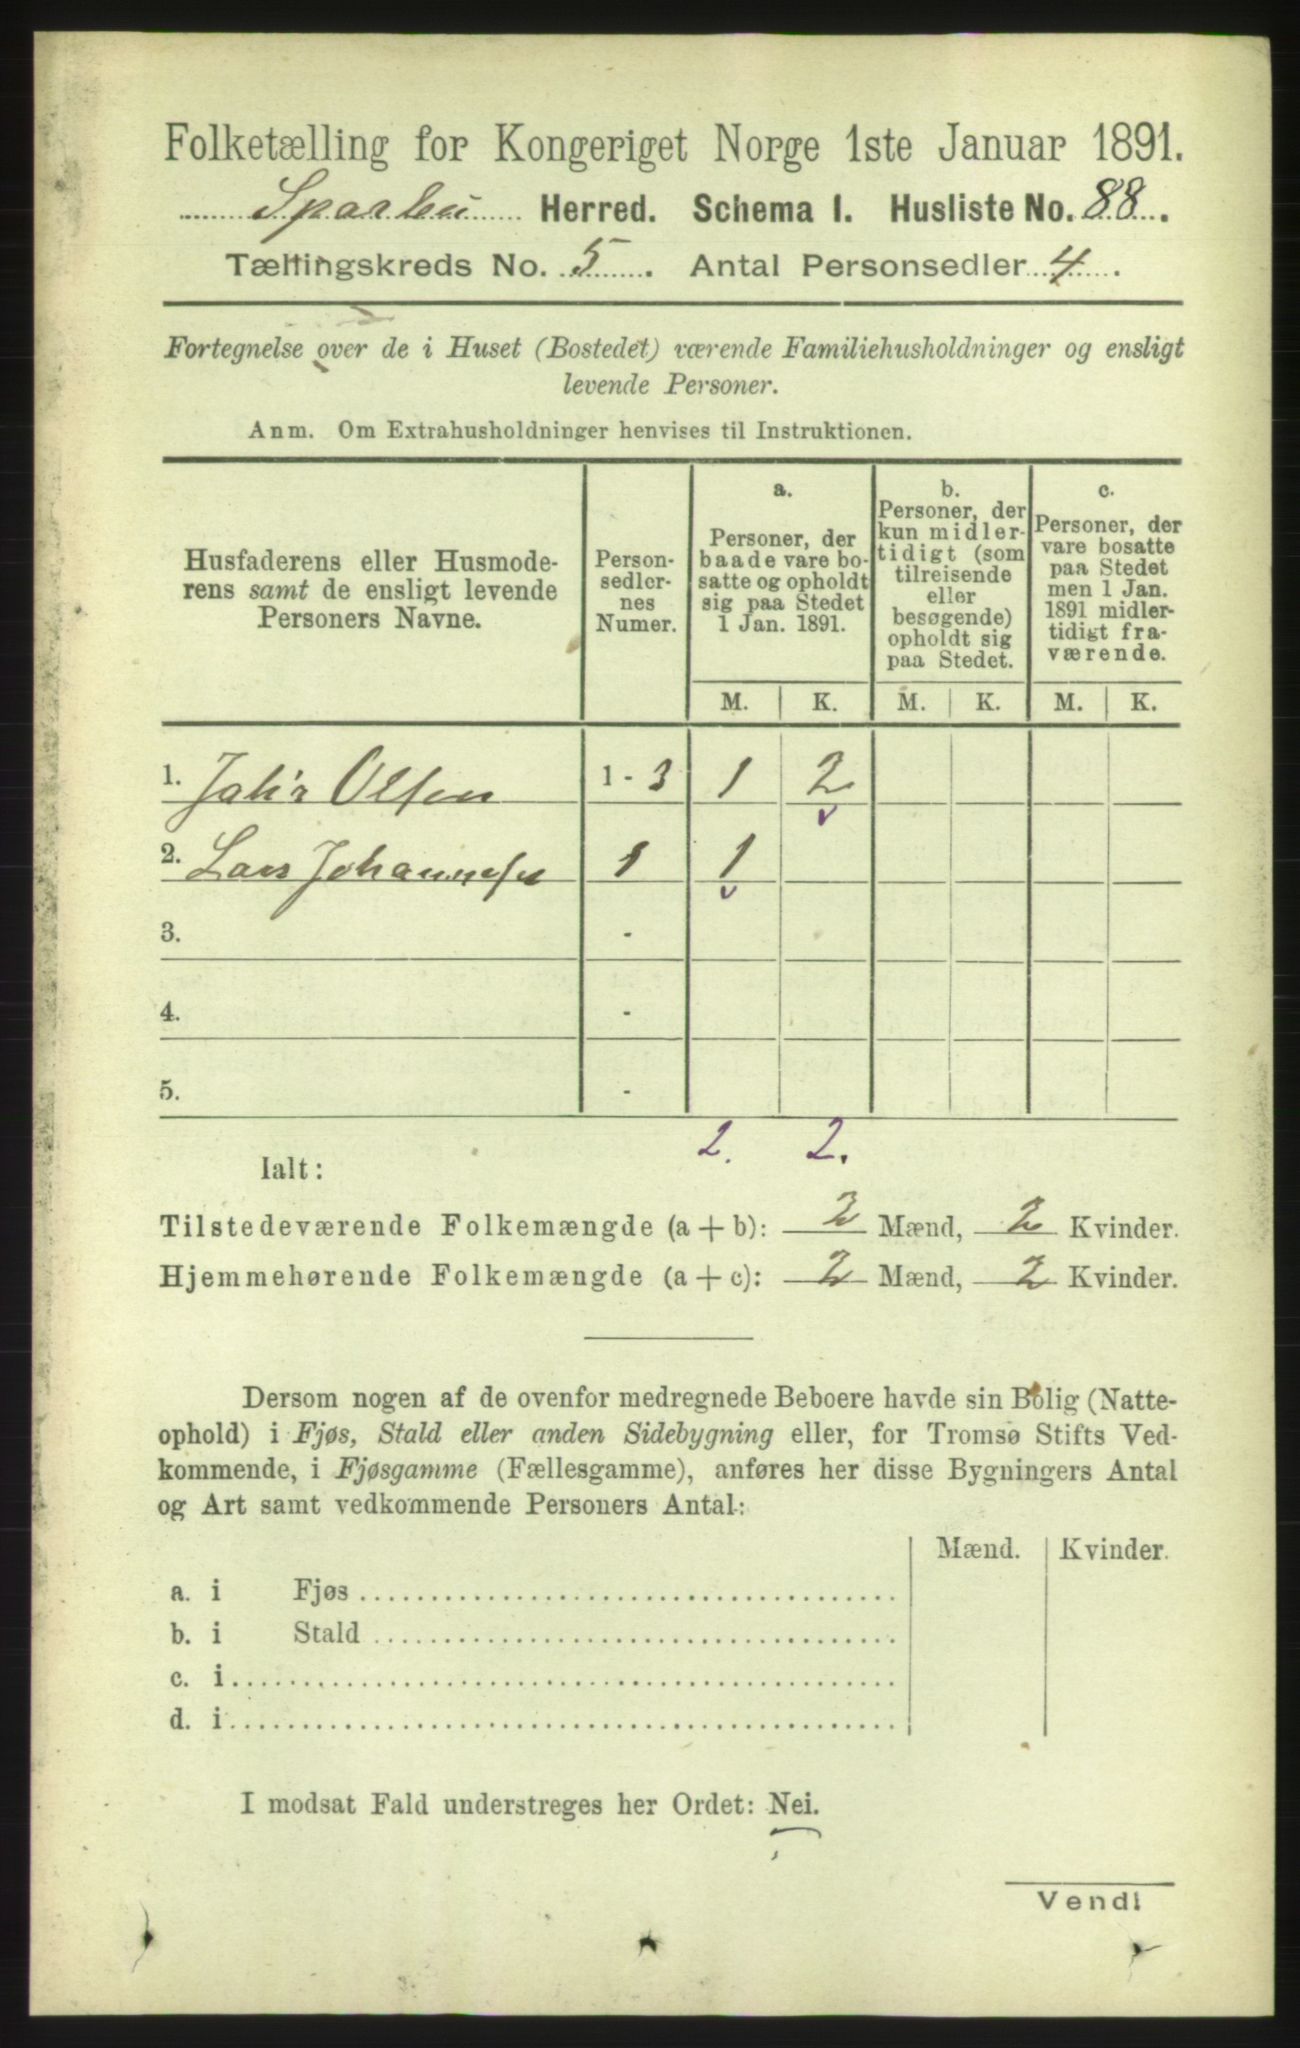 Folketælling for Kongeriget Norge 1ste Januar 1891.
Sparbu Herred. Schema I. Husliste No. 88.
Tællingskreds No. 5. Antal Personsedler 4.
Fortegnelse over de i Huset (Bostedet) værende Familiehusholdninger og ensligt
levende Personer.
Anm. Om Extrahusholdninger henvises til Instruktionen.
Husfaderens eller Husmode-
rens samt de ensligt levende
Personers Navne.
Person-
sedler-
nes
Numer.
a.
Personer, der
baade vare bo-
satte og opholdt
sig paa Stedet
1 Jan. 1891.
b.
Personer, der
kun midler-
tidigt (som
tilreisende
eller
besøgende)
opholdt sig
paa Stedet.
c.
Personer, der
vare bosatte
paa Stedet
men 1 Jan.
1891 midler-
tidigt fra-
værende.
M. K. M. K. M. K.
1. Olsen 1 - 3 1 2
2. Lars Johannesen 1 1
3. -
4. -
5. -
2. 2.
Ialt:
Tilstedeværende Folkemængde (a + b): 2 Mænd, 2 Kvinder.
Hjemmehørende Folkemængde (a + c): 2 Mænd, 2 Kvinder.
Dersom nogen af de ovenfor medregnede Beboere havde sin Bolig (Natte-
ophold) i Fjøs, Stald eller anden Sidebygning eller, for Tromsø Stifts Ved-
kommende, i Fjøsgamme (Fællesgamme), anføres her disse Bygningers Antal
og Art samt vedkommende Personers Antal:
Mænd. Kvinder.
a. i Fjøs
b. i Stald
c. i
d. i
I modsat Fald understreges her Ordet: Nei.
Vend!